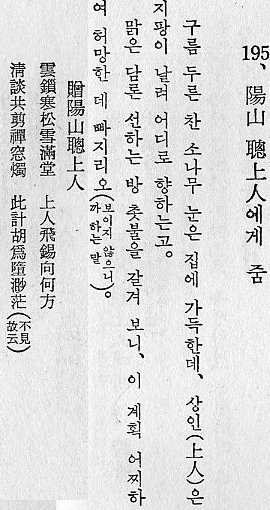 195、陽山 聰上人에게 줌
구름 두른 찬 소나무 눈은 집에 가득한데、상인(上人)은
지팡이 날려 어디로 향하는고。
맑은 담론 선하는 방 촛불을 갈겨 보니、이 계획 어찌하
여 허망한 데 빠지리오(보이지 않으니까 하는 말)。
贈陽山聰上人
雲鎖寒松雪滿堂 上人飛錫向何方
淸談共剪禪窓燭 此計胡爲墮渺茫(不見故云)